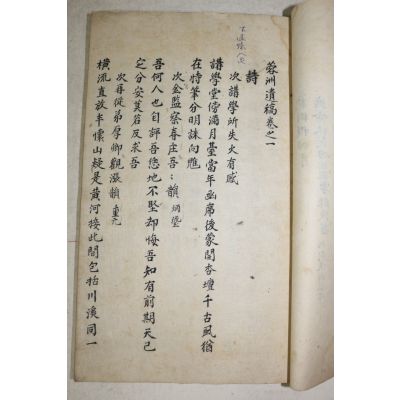 蓉洲遺稿卷之一
詩
次講學所失火有感
講學堂傍滿月臺當年函席後蒙開杏壇千古風猶
在特筆分明誅向魋
次金監察春庄吾吾韻 炳瑩
吾何人也自評吾您地不堅却悔吾知有前期天已
定分安莫若反求吾
次再從弟厚卿觀漲韻 重九
橫流直放半懷山疑是黃河接此間包括川溪同一